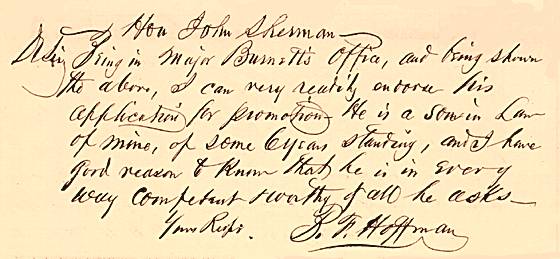 Hon John Sherman
D Sir Being in Major Burnett's Office, and being shown
the above, I can very readily endorse his
application for promotion - He is a son in Law
of mine, of some 6 years standing, and I have
good reason to know that he is in every
way competent & worthy of all he asks -
Yours Respt.
B. F. Hoffman